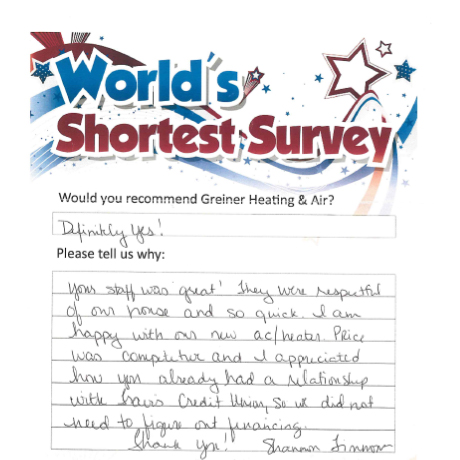 World's
Shortest Survey
Would you recommend Greiner Heating & Air?
Definitely Yes!
Please tell us why:
Your staff was great! They were respectful
of our house and so quick. I am
happy with our new ac/heater. Price
was competitive and I appreciated
how you already had a relationship
with Credit Union, so we did not
need to figure out financing.
Thank you! Shannon